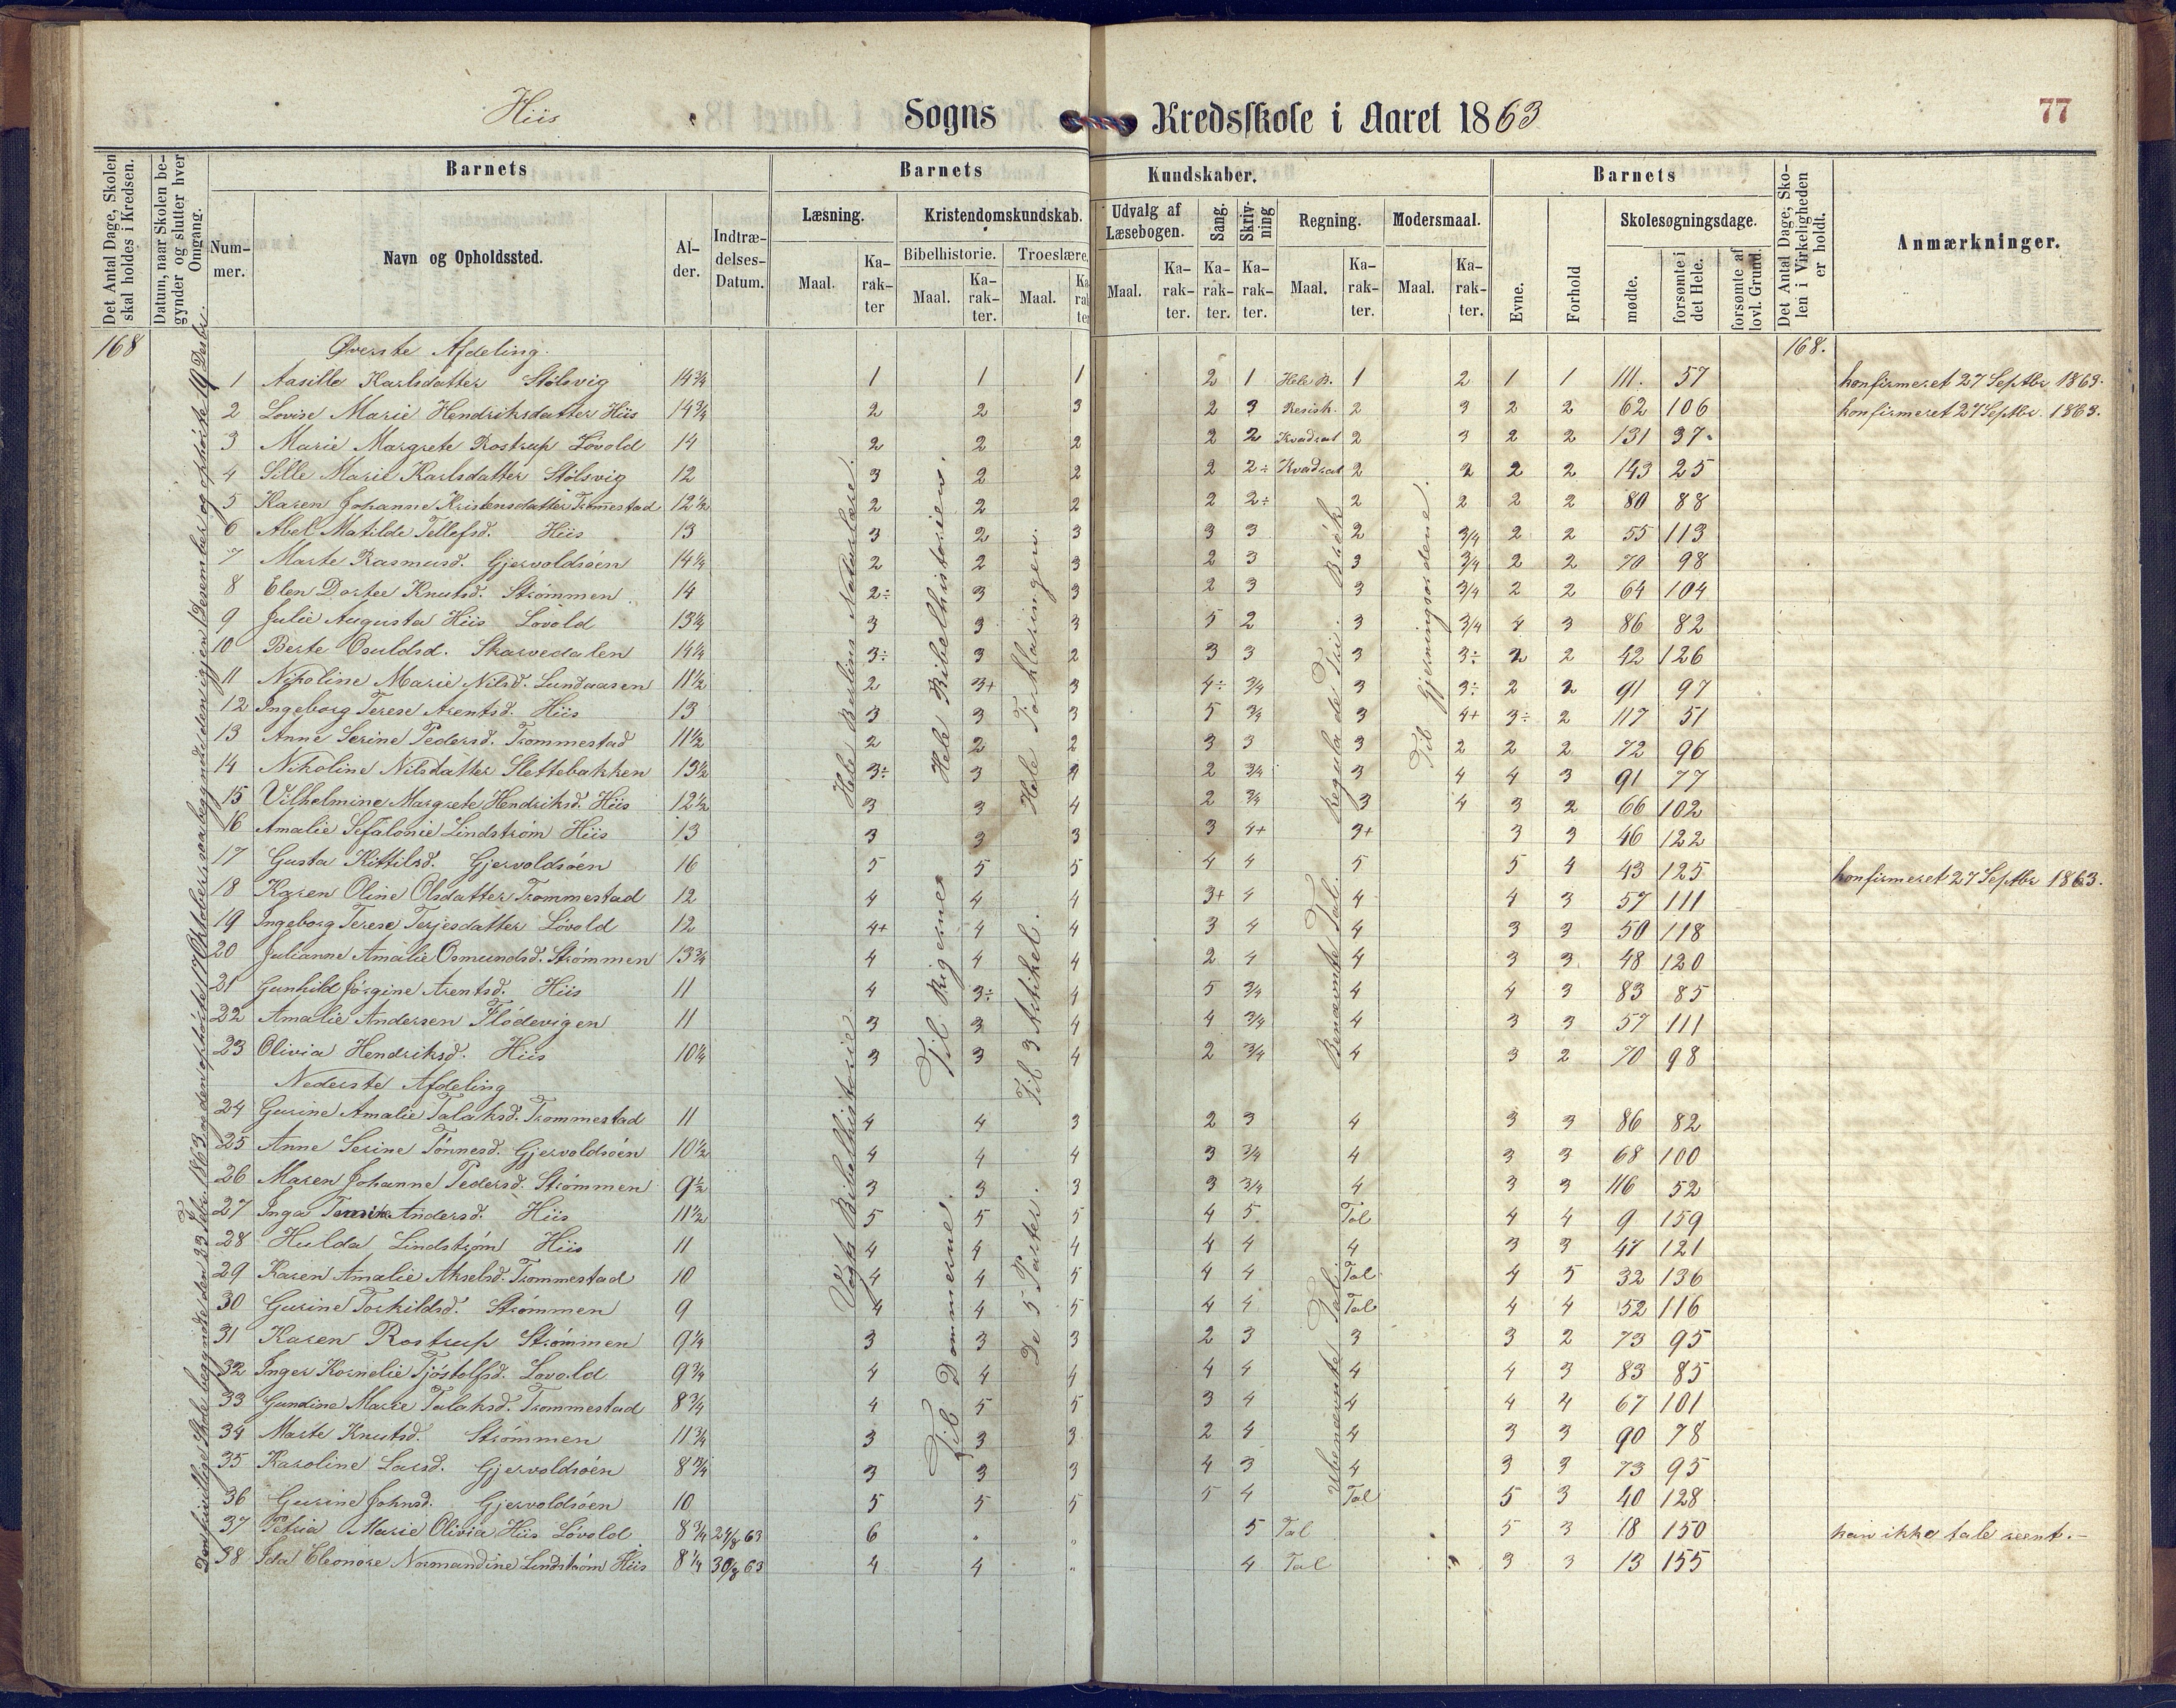 Hiis Sogns Kredsskole i Aaret 1863 77
Det Antal Dage, Skolen skal holdes i Kredsen.
Datum, naar Skolen begynder og slutter hver Omgang.
Barnets Barnets Kundskaber. Barnets
Nummer. Navn og Opholdssted. Alder. Indtrædelses-Datum.
Læsning. Kristendomskundskab. Udvalg af Læsebogen. Sang. Skrivning Regning. Modersmaal. Evne. Forhold Skolesøgningsdage. Det Antal Dage, Skolen i Virkeligheden er holdt. Anmærkninger.
Bibelhistorie. Troeslære.
Maal. Karakter Maal. Karakter. Maal. Karakter Maal. Karakter. Karakter. Karakter. Maal. Karakter. Maal. Karakter. mødte. forsømte i det Hele. forsømte af lovl. Grund.
168 Øverste Afdeling. 168.
1 Aasille Karlsdatter Stölsvig 14¾ 1 1 1 2 1 Hele B. 1 2 1 1 111. 57 konfirmeret 27 Septbr 1863.
2 Lovise Marie Hendriksdatter Hiis 14¾ 2 2 3 2 3 Resisk. 2 3 2 2 62 106 konfirmeret 27 Septbr. 1863.
3 Marie Margrete Rostrup Lövold 14 2 2 2 2 2 Kvadrat 2 3 2 2 131 37
4 Sille Marie Karlsdatter Stölsvig 12 3 2 2 2 2÷ Kvadrat 2 2 2 2 143 25
5 Karen Johanne Kristensdatter Trommestad 12½ 2 2 2 2 2÷ 2 2 2 2 80 88
6 Abel Matilde Tellefsd. Hiis 13 3 2 3 3 3 2 3/4 2 2 55 113
7 Marte Rasmusd. Gjervoldsöen 14¼ 2 2 3 2 3 3 3/4 2 2 70 98
8 Elen Dortee Knutsd. Strömmen 14 2÷ 3 3 2 3 3 3/4 2 2 64 104
9 Julie Augusta Hiis Lövold 13¼ 3 3 3 5 2 3 3/4 4 3 86 82
10 Berte Osuldsd. Skarvedalen 14¼ 3÷ 3 2 3 3 3 3÷ 2 2 42 126
11 Nikoline Marie Nilsd. Lundaasen 11½ 2 3+ 3 4÷ 3/4 3 3÷ 2 2 91 97
12 Ingeborg Terese Arentsd. Hiis 13 3 3 3 5 3/4 3 4+ 3÷ 2 117 51
13 Anne Serine Pedersd. Trommestad 11½ 2 2 2 3 3 3 2 2 2 72 96
14 Nikoline Nilsdatter Slettebakken 13½ 3÷ 3 2 3/4 3 4 4 3 91 77
15 Vilhelmine Margrete Hendriksd. Hiis 12½ 3 3 4 2 3/4 3 4 3 2 66 102
16 Amalie Sefalonie Lindström Hiis 13 3 3 3 3 4+ 3+ 3 3 46 122
17 Gusta Kittilsd. Gjervoldsöen 16 5 5 5 4 4 5 5 4 43 125 konfirmeret 27 Septbr 1863.
18 Karen Oline Olsdatter Trommestad 12 4 4 4 3+ 4 4 4 3 57 111
19 Ingeborg Terese Terjesdatter Lövold 12 4+ 4 4 3 4 4 3 3 50 118
20 Julianne Amalie Osmundsd. Strömmen 13¾ 4 4 4 2 4 4 3 3 48 120
21 Gunhild Jörgine Arentsd. Hiis 11 4 3÷ 4 5 3/4 4 4 3 83 85
22 Amalie Andersen Flödevigen 11 3 3 4 4 3/4 4 3 3 57 111
23 Olivia Hendriksd. Hiis 10¼ 3 3 4 2 3/4 4 3 2 70 98
Nederste Afdeling
24 Gurine Amalie Talaksd. Trommestad 11 4 4 3 2 3 4 3 3 86 82
25 Anne Serine Tönnesd. Gjervoldsöen 10½ 4 4 4 3 3/4 4 3 3 68 100
26 Maren Johanne Pedersd. Strömmen 9½ 3 3 3 3 3/4 4 3 3 116 52
27 Inga Andersd. Hiis 11½ 5 5 5 4 5 Tal 4 4 9 159
28 Hulda Lindström Hiis 11 4 4 4 4 4 4 3 3 47 121
29 Karen Amalie Akselsd. Trommestad 10 4 4 5 4 4 Tal 4 5 32 136
30 Gurine Torkildsd. Strömmen 9 4 4 5 4 4 Tal 4 4 52 116
31 Karen Rostrup Strömmen 9¼ 3 3 3 2 3 3 3 2 73 95
32 Inger Kornelie Tjöstolfsd. Lövold 9¾ 4 4 4 4 4 4 4 3 83 85
33 Gundine Marie Talaksd. Trommestad 8¾ 4 5 5 3 4 4 4 4 67 101
34 Marte Knutsd. Strömmen 11¾ 3 3 3 2 4 4 3 3 90 78
35 Karoline Larsd. Gjervoldsöen 8¾ 3 3 3 4 3 4 3 3 73 95
36 Gurine Johnsd. Gjervoldsöen 10 5 5 5 5 4 Tal 5 3 40 128
37 Petria Marie Olivia Hiis Lövold 8¾ 24/8 63 6 5 Tal 5 3 18 150 kan ikke tale reent.
38 Ida Eleonöre Normandine Lindström Hiis 8¼ 30/8 63 4 4 4 Tal 3 3 13 155
Hele Naturlære.
Hele Bibelhistorien.
Hele Forklaringen.
Regula de Tri. Brök
Til Gjerningsordene.
Vogts Bibelhistorie.
Til Rigerne
Til 3 Artikel.
Benævnte Tal.
Til Dommerne.
De 5 Parter.
Ubenævnte Tal.